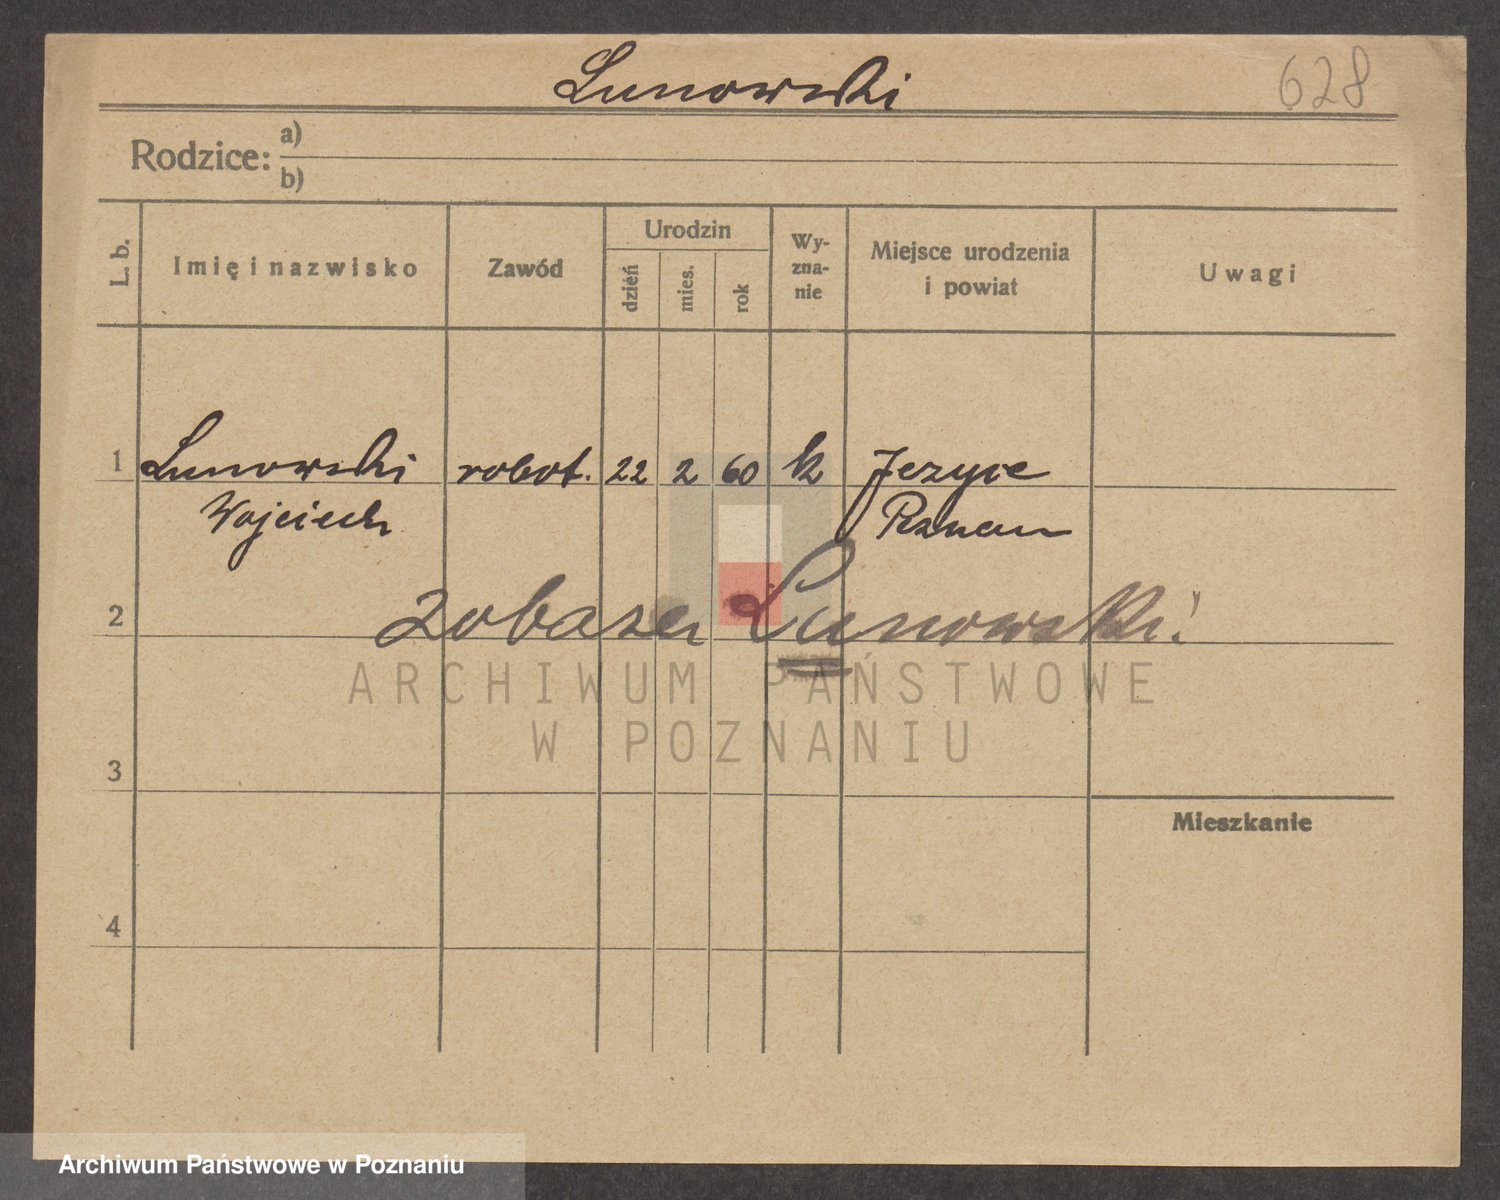 Lunowski
628
Rodzice:
a)
b)
L. b.
Imię i nazwisko
Zawód
Urodzin
dzień
mies.
rok
Wy-
zna-
nie
Miejsce urodzenia
i powiat
Uwagi
1 Lunowski robot. 22 2 60 k Jezyce
Wojciech Poznan
2 zobacz Lunowski!
ARCHIWUM PAŃSTWOWE
W POZNANIU
3
Mieszkanie
4
Archiwum Państwowe w Poznaniu